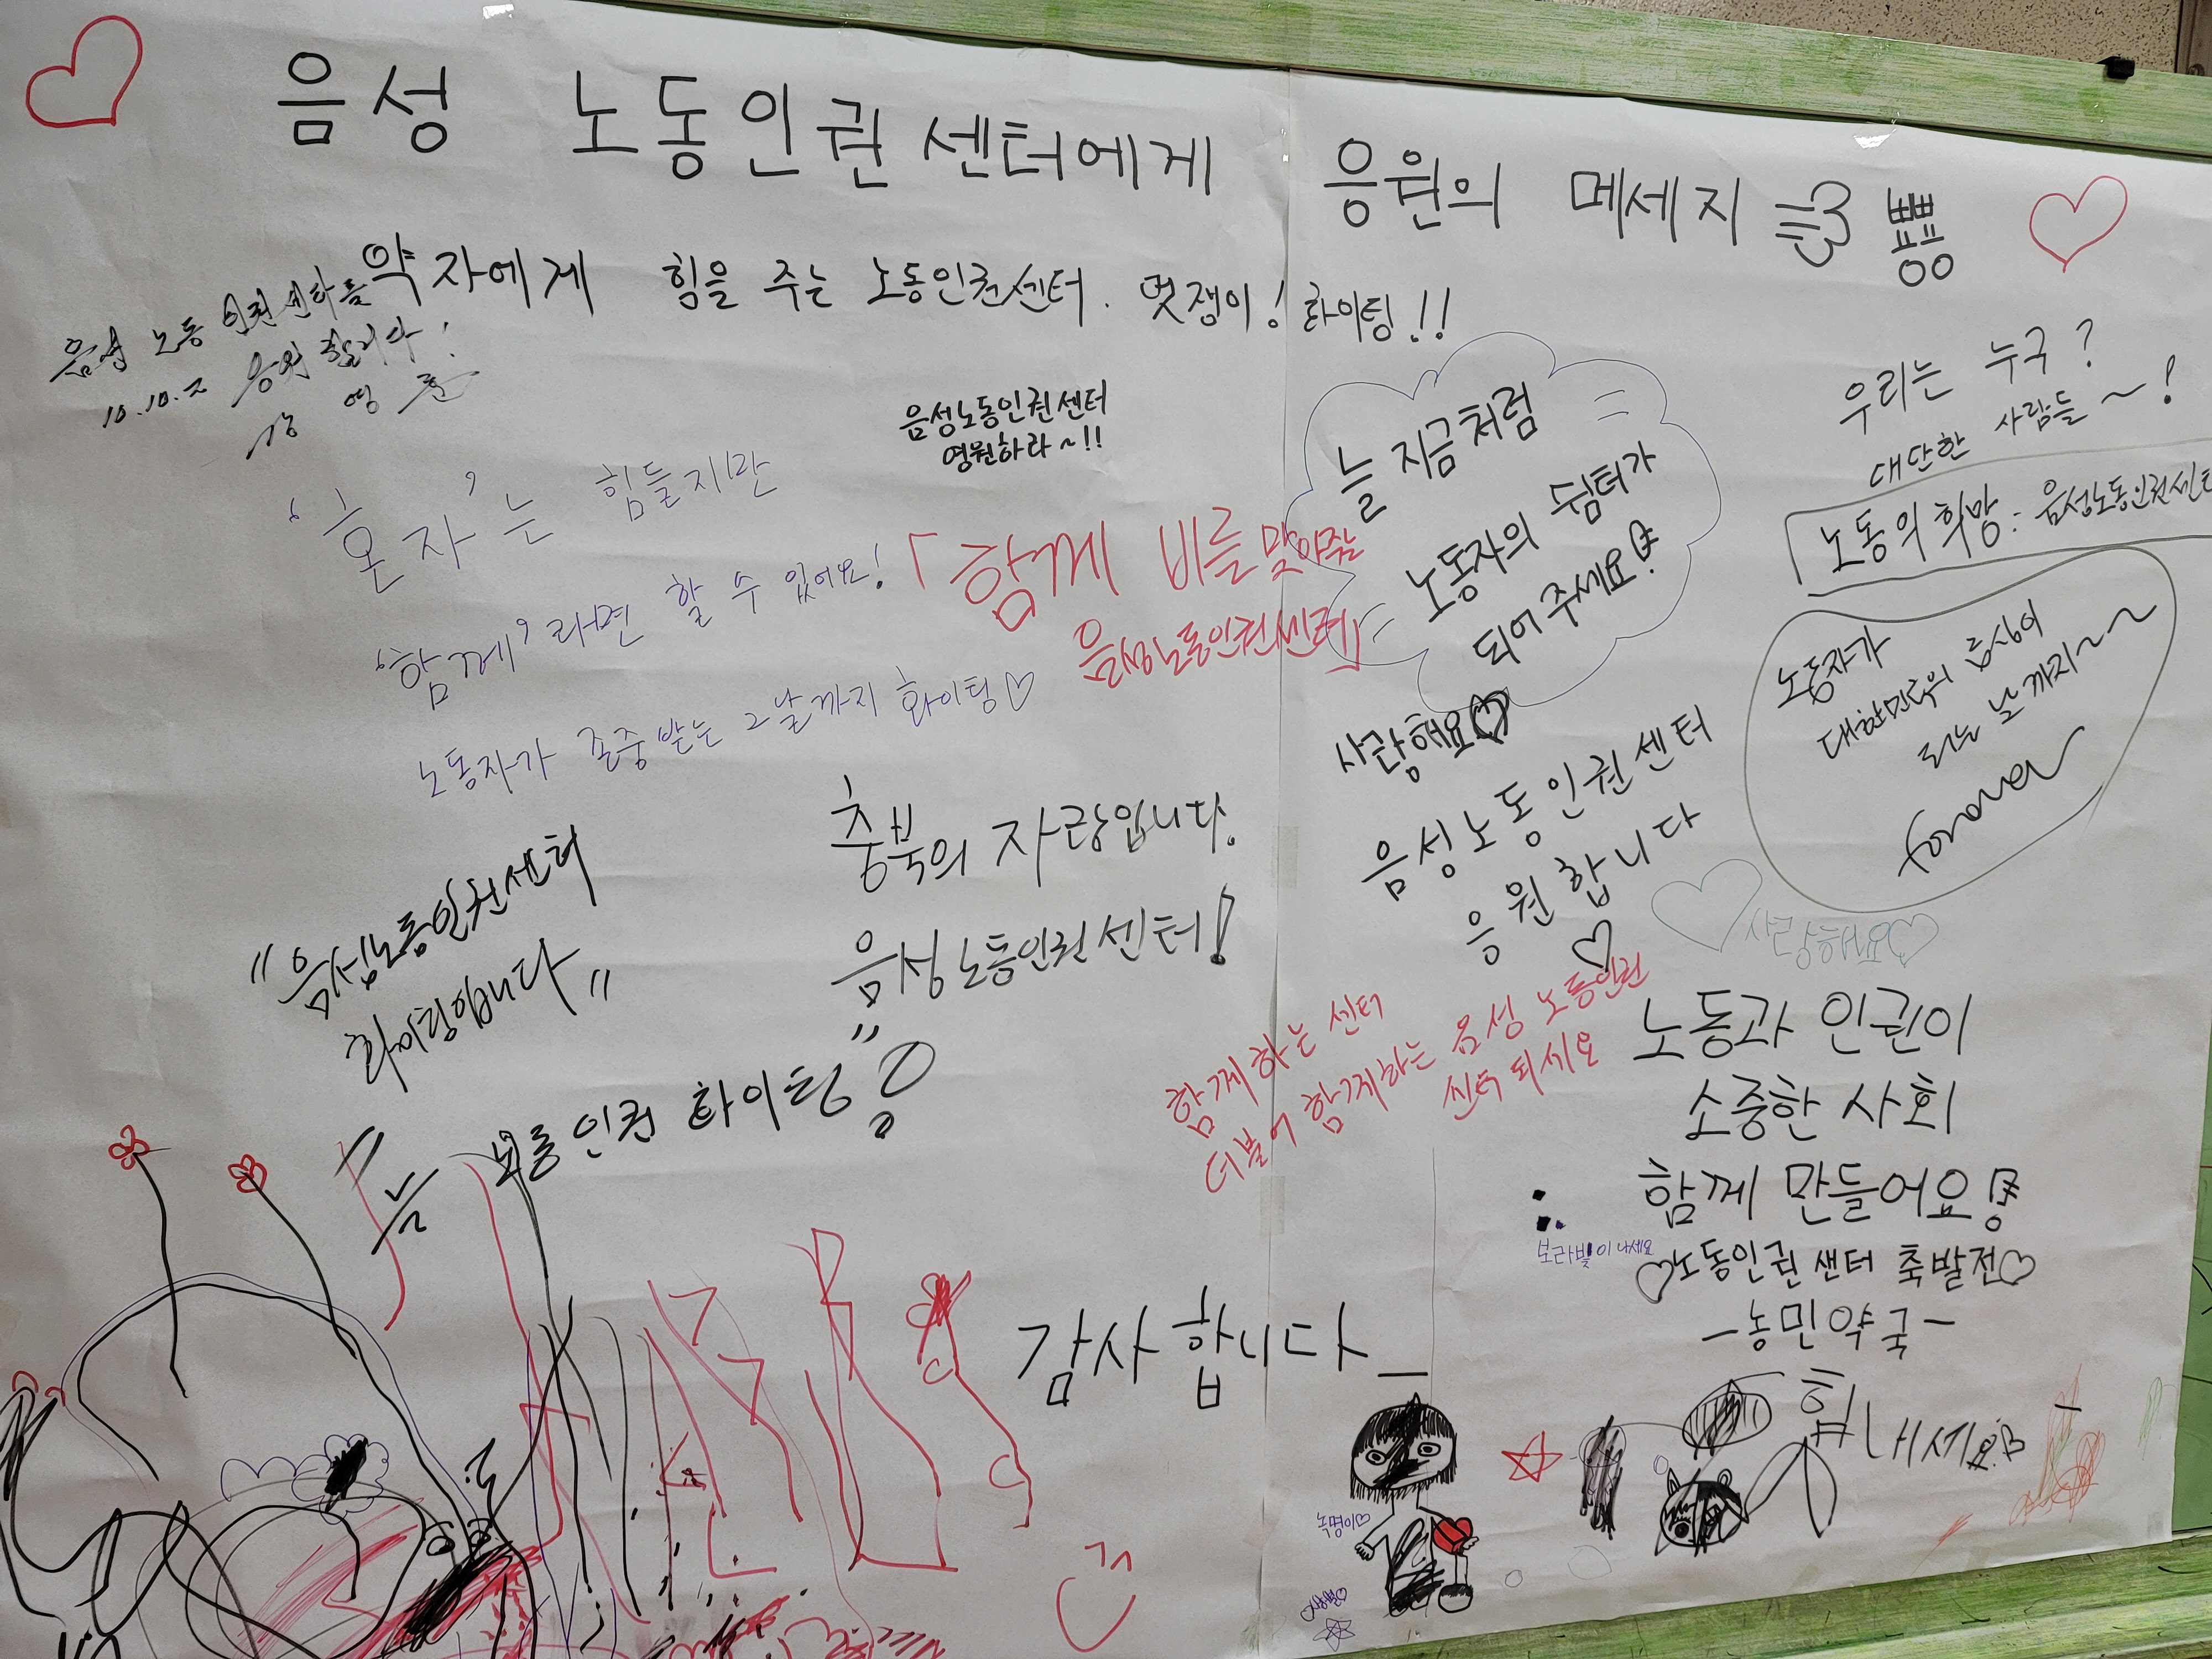 음성 노동인권센터에게 응원의 메세지 뿅
약자에게 힘을 주는 노동인권센터. 멋쟁이! 화이팅!!
음성 노동 인권센타를
응원 합니다!
음성노동인권센터
영원하라~!!
'혼자'는 힘들지만
'함께'라면 할 수 있어요!
노동자가 존중받는 그날까지 화이팅♡
「함께 비를 맞아주는
음성노동인권센터」
늘 지금처럼
노동자의 쉼터가
되어 주세요!
우리는 누구?
대단한 사람들~!
노동의 희망: 음성노동인권센터
노동자가
대한민국의 중심이
되는 날 까지~~
forever
사랑해요♡
음성노동인권센터
응원합니다
♡
사랑해요♡
충북의 자랑입니다.
음성노동인권센터!
"음성노동인권센터
화이팅입니다"
노동인권 화이팅"!
함께하는 센터
더불어 함께하는 음성 노동인권
센터 되세요
노동과 인권이
소중한 사회
함께 만들어요!
보라빛이 나세요
♡노동인권 센터 축발전♡
-농민약국-
감사합니다_
힘내세요♡